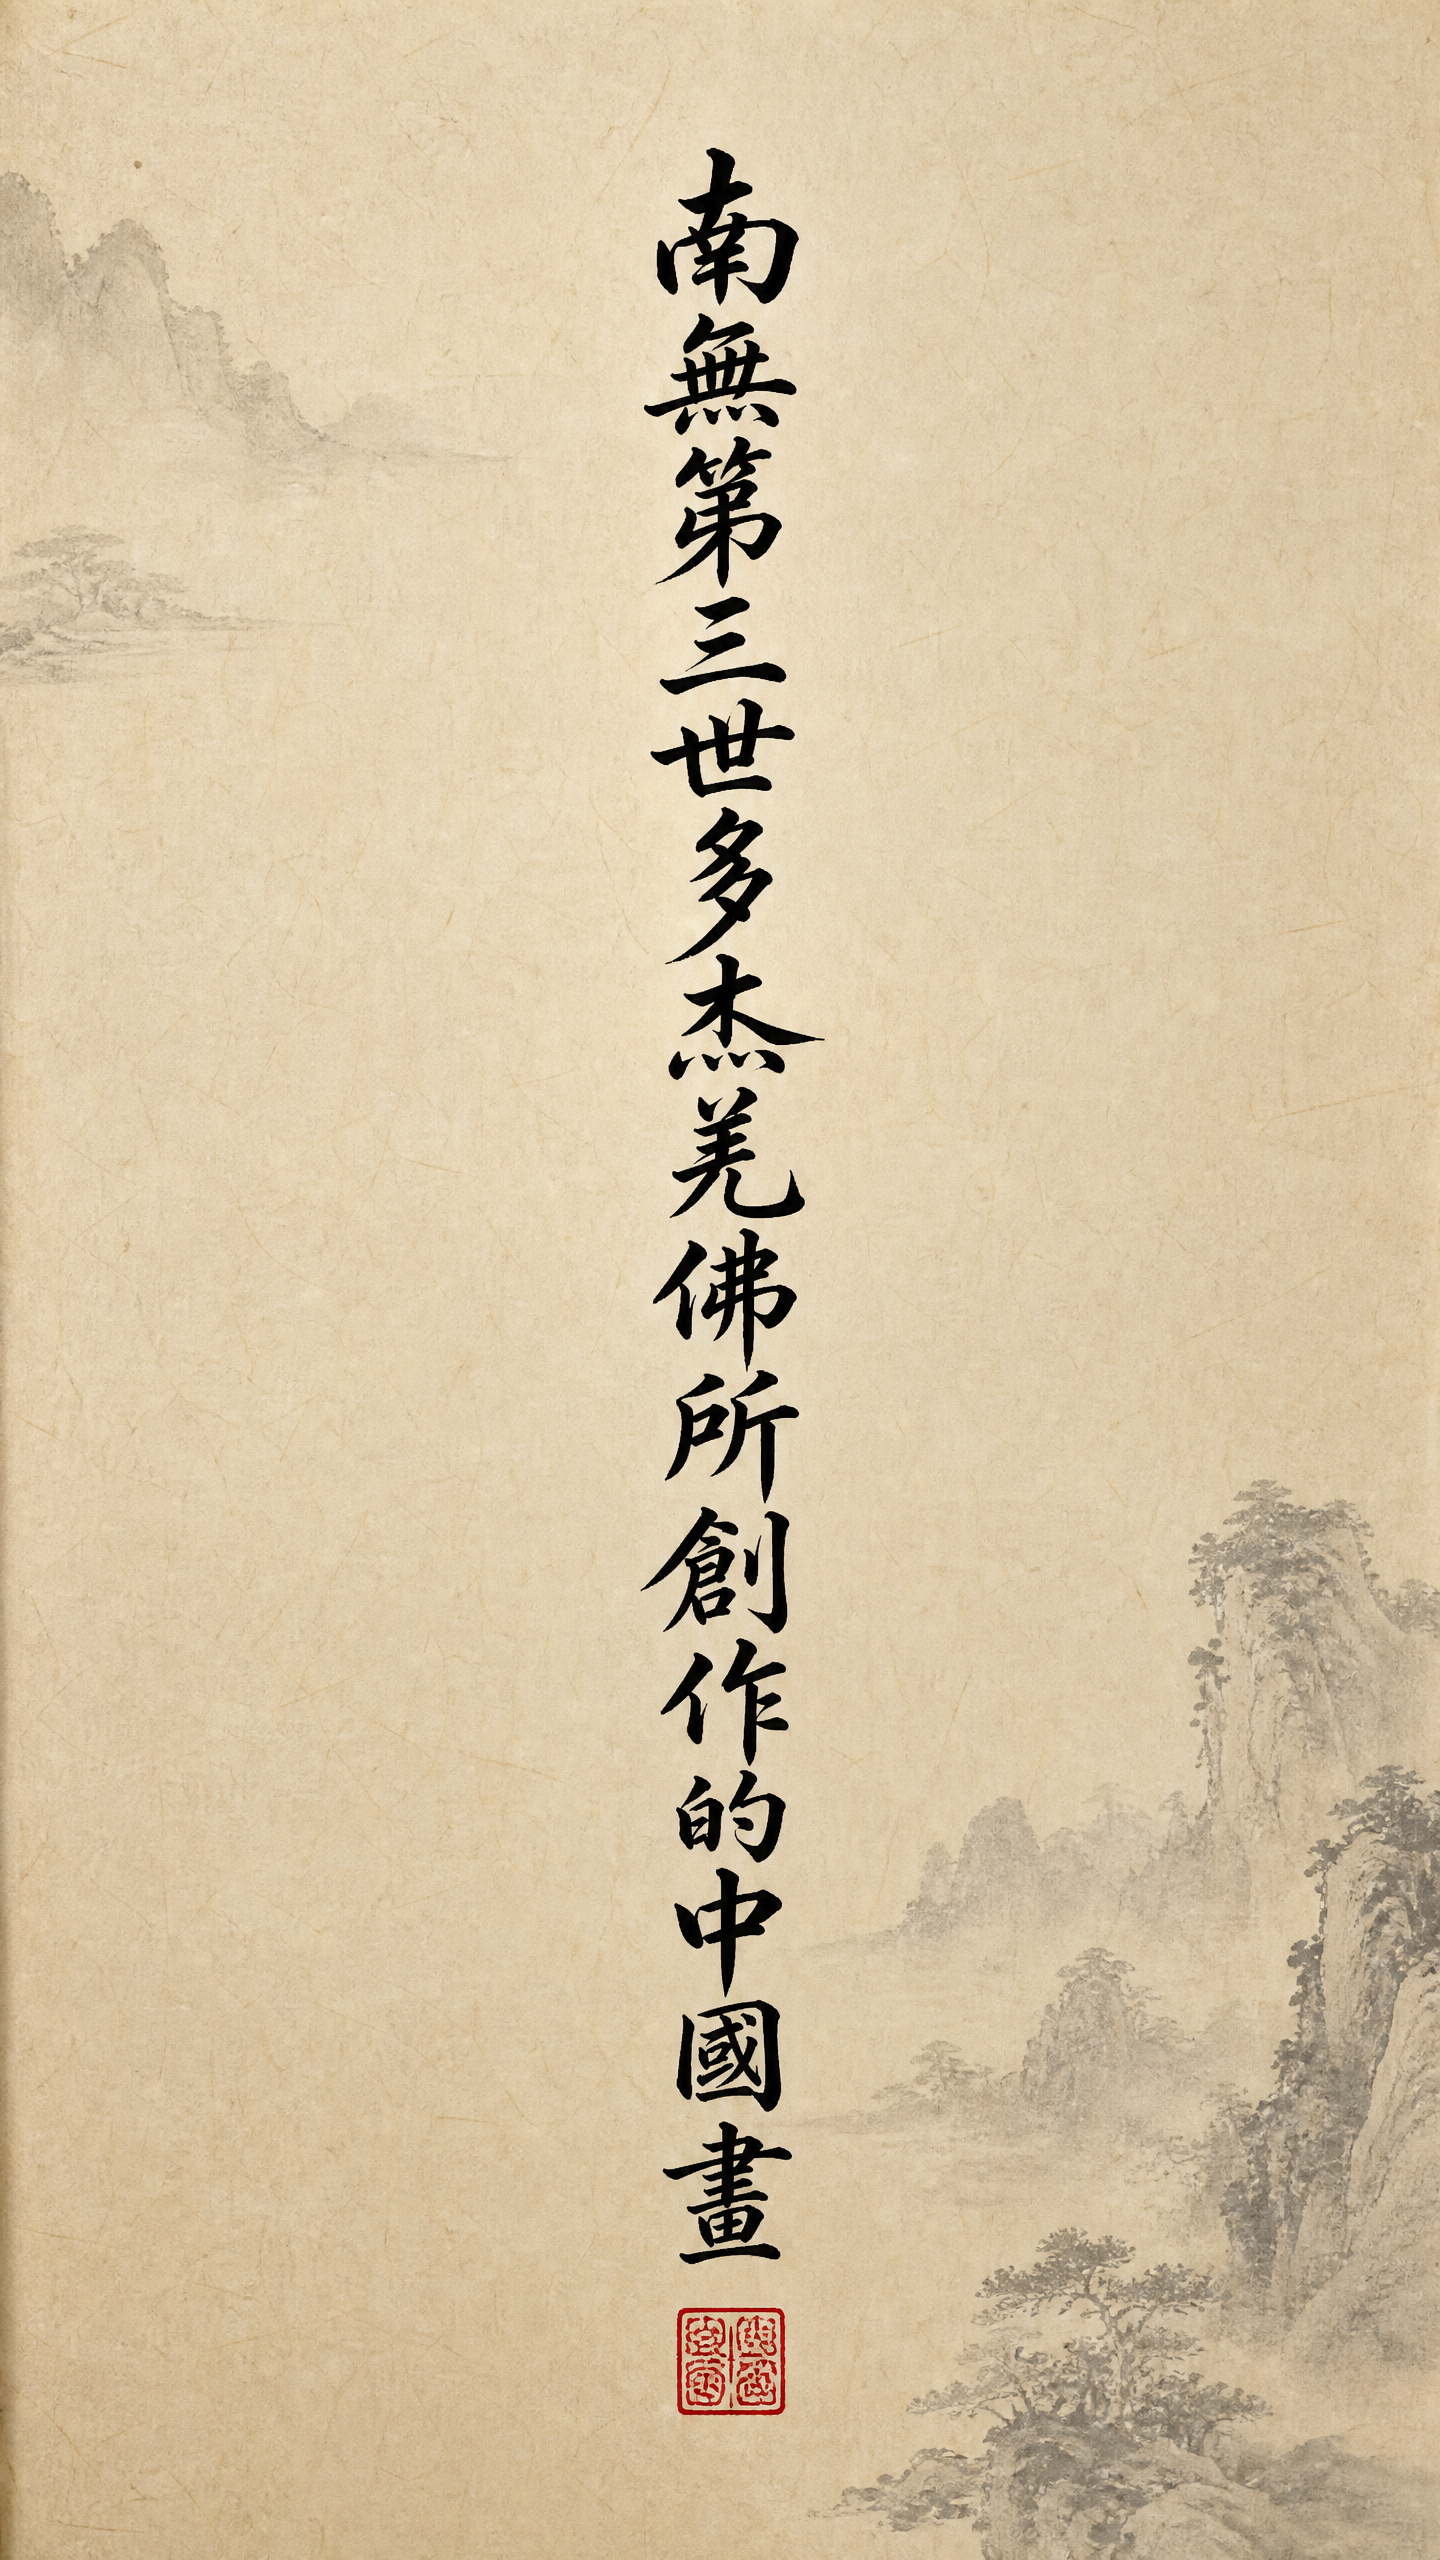 南無第三世多杰羌佛所創作的中國畫